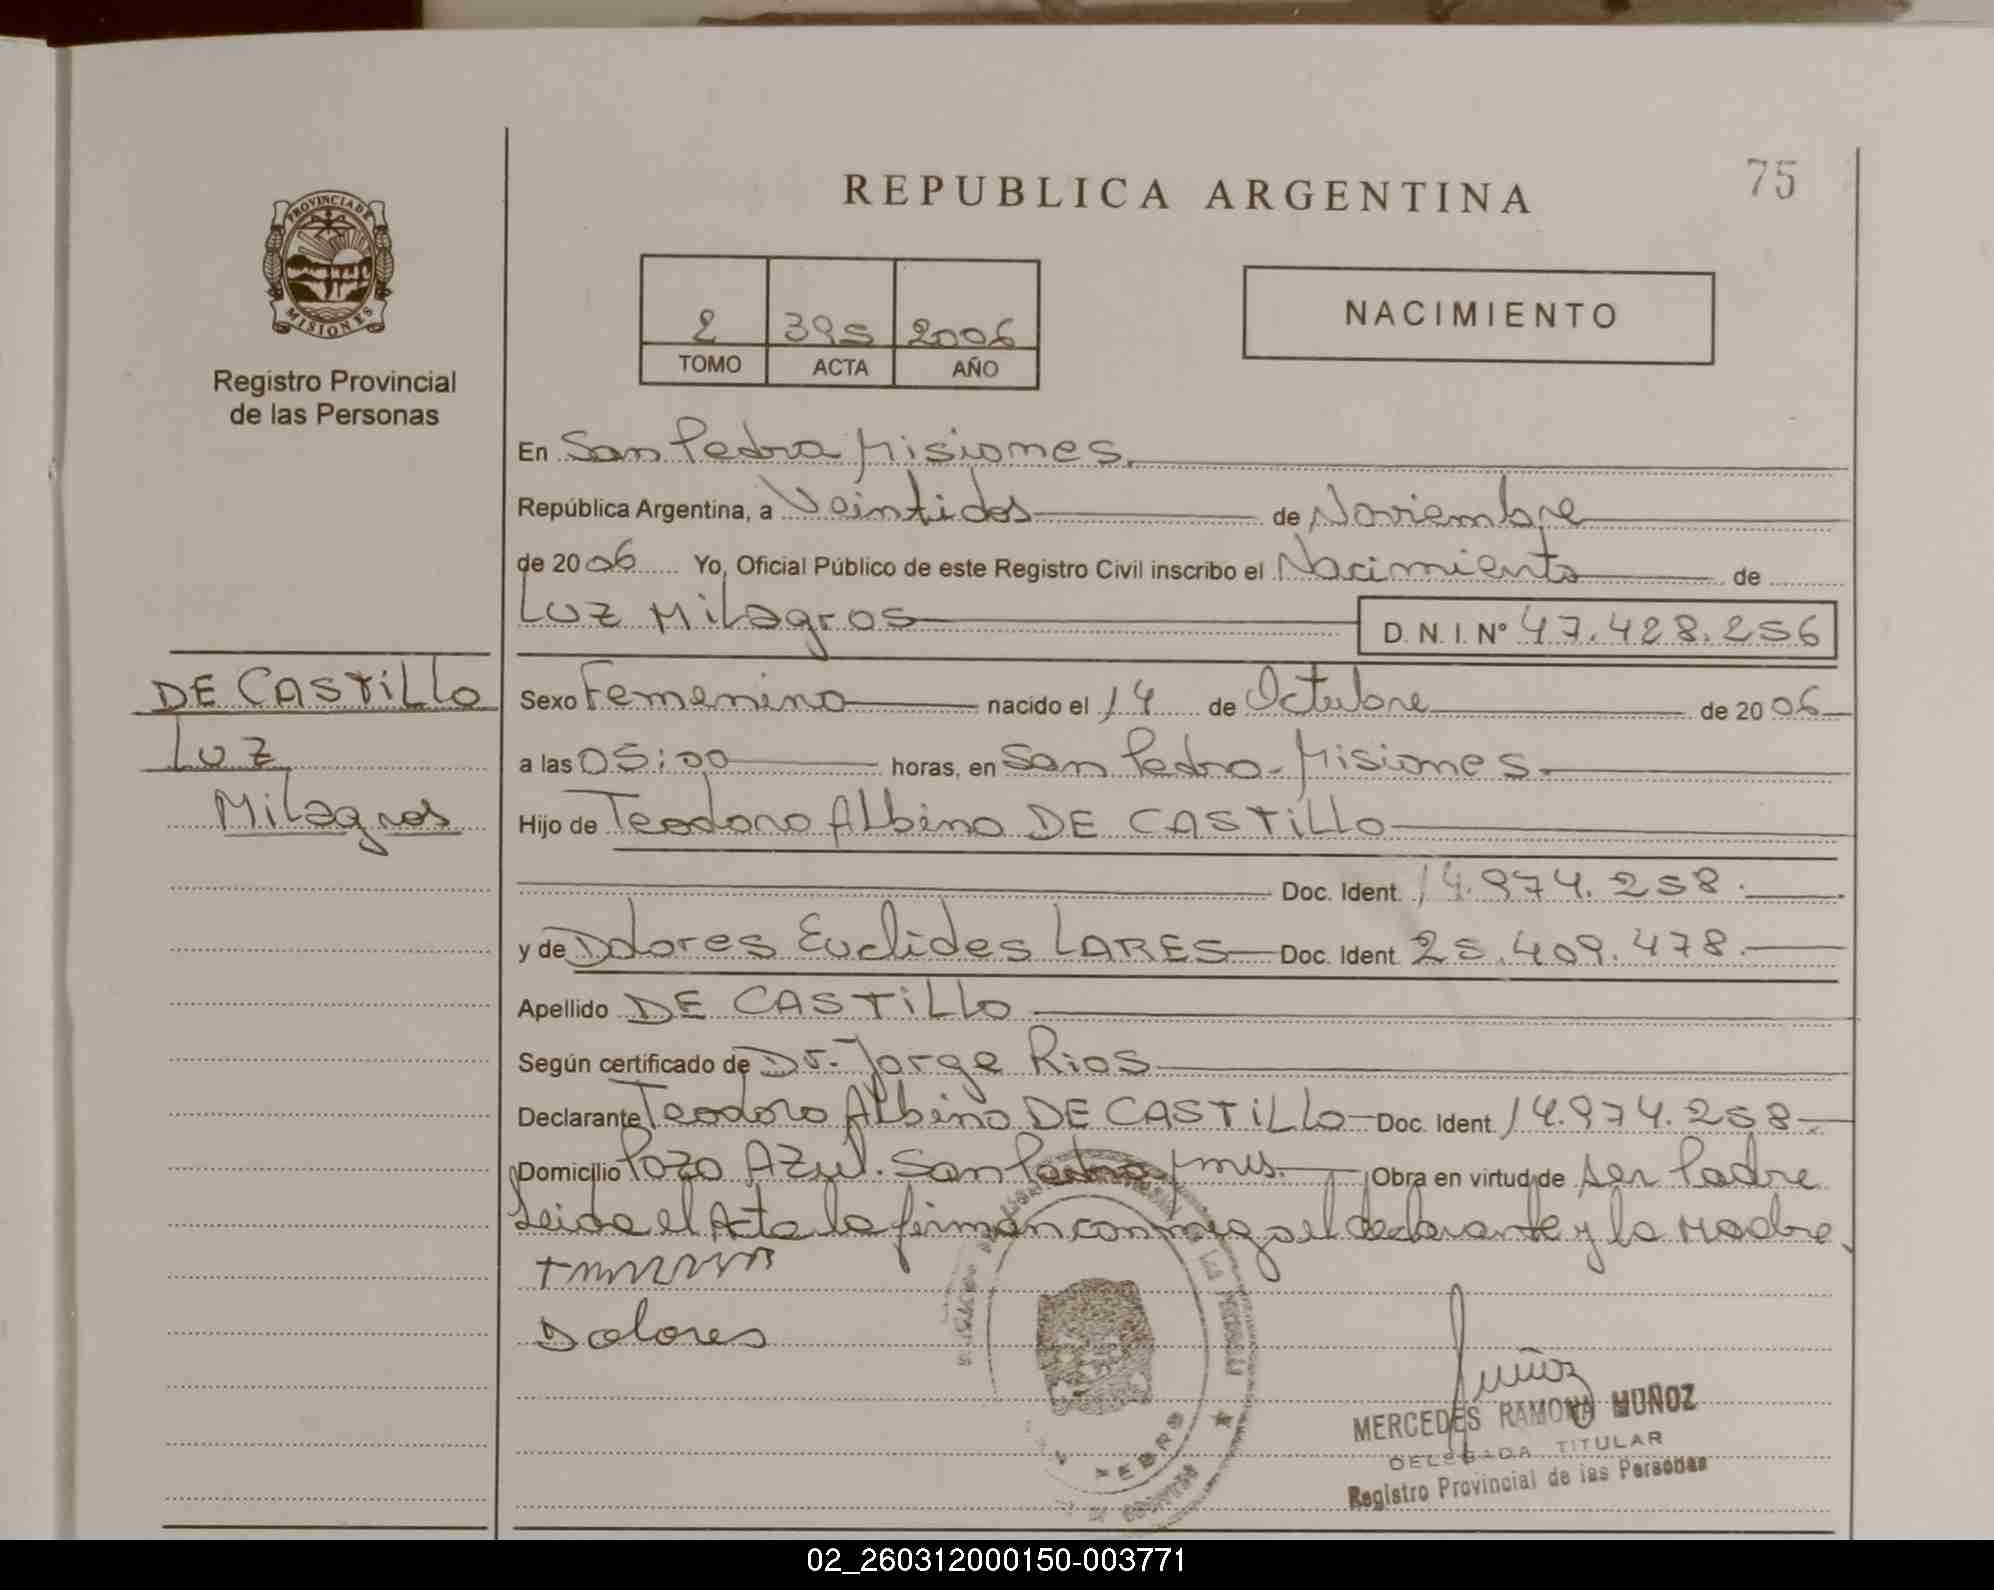 REPUBLICA ARGENTINA
75
PROVINCIA DE
MISIONES
Registro Provincial
de las Personas
2 395 2006
TOMO ACTA AÑO
NACIMIENTO
En San Pedro Misiones
República Argentina, a Veintidos de Noviembre
de 2006 Yo, Oficial Público de este Registro Civil inscribo el Nacimiento de
Luz Milagros D. N. I. Nº 47.428.256
DE CASTiLLo
Luz
Milagros
Sexo Femenino nacido el 14 de Octubre de 2006
a las 05:00 horas, en San Pedro-Misiones
Hijo de Teodoro Albino DE CASTiLLo
Doc. Ident. 14.974.258.
y de Dolores Euclides LARES Doc. Ident. 25.409.478.
Apellido DE CASTiLLo
Según certificado de Dr. Jorge Rios
Declarante Teodoro Albino DE CASTiLLo Doc. Ident. 14.974.258
Domicilio Pozo Azul. San Pedro mns. Obra en virtud de ser Padre
Leida el Acta la firman conmigo el declarante y la Madre.
Dolores
Muñoz
MERCEDES RAMONA MUÑOZ
DELEGADA TITULAR
Registro Provincial de las Personas
02_260312000150-003771